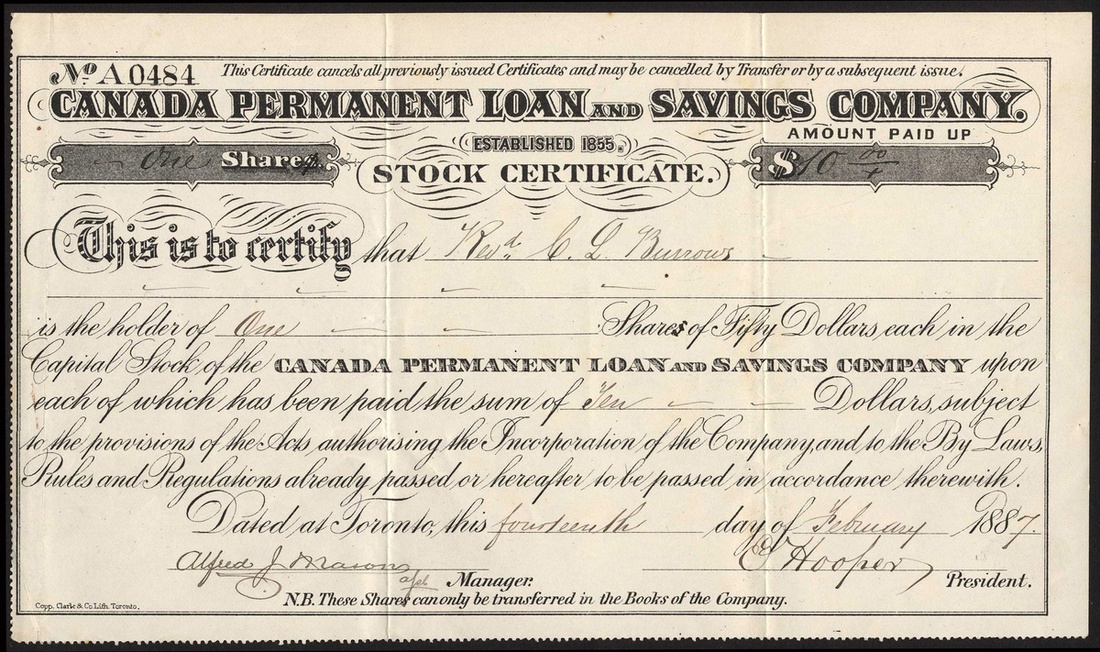 No A0484 This Certificate cancels all previously issued Certificates and may be cancelled by Transfer or by a subsequent issue.
CANADA PERMANENT LOAN AND SAVINGS COMPANY.
AMOUNT PAID UP
ESTABLISHED 1855.
One Shares $10 00
STOCK CERTIFICATE.
This is to certify that Revd. C. L. Burrows
is the holder of One Shares of Fifty Dollars each in the
Capital Stock of the CANADA PERMANENT LOAN AND SAVINGS COMPANY upon
each of which has been paid the sum of Ten Dollars, subject
to the provisions of the Acts authorising the Incorporation of the Company, and to the By Laws,
Rules and Regulations already passed or hereafter to be passed in accordance therewith.
Dated at Toronto, this fourteenth day of February 1887.
Alfred J. Mason Manager. Hooper President.
N.B. These Shares can only be transferred in the Books of the Company.
Copp, Clark & Co Lith. Toronto.